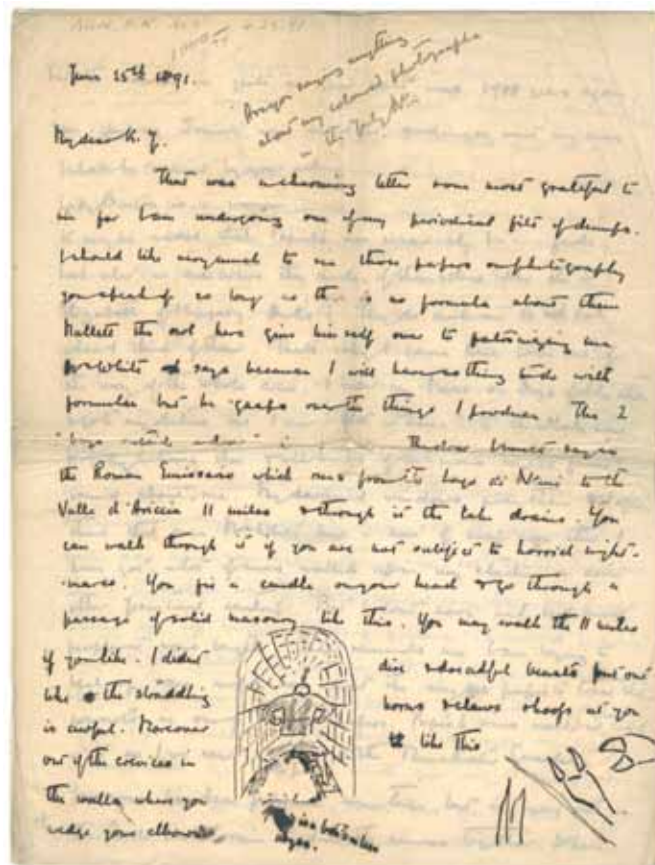 June 25th 1891.
anything
about my coloured photographs
in the July
My dear K. J.
That was a charming letter most grateful to
me for I am undergoing one of my periodical fits of dumps.
I should like to see those papers on photography
you speak of so long as there is no formula about them
the owl here give himself over to patronizing me
says because I will have nothing to do with
formulas but he gasps over the things I produce. The 2
" in
the Roman Emissario which runs from the Lago di Nemi to the
Valle d'Ariccia 11 miles & through it the lake drains. You
can walk through it if you are not subject to horrid night-
mares. You fix a candle on your head & go through a
passage of solid masonry like this. You may walk the 11 miles
if you like. I didn't
like the straddling
is awful. Moreover
out of the crevices in
the walls where you
wedge your elbows
dire & dreadful beasts put out
horns & claws & hoofs at you
like this